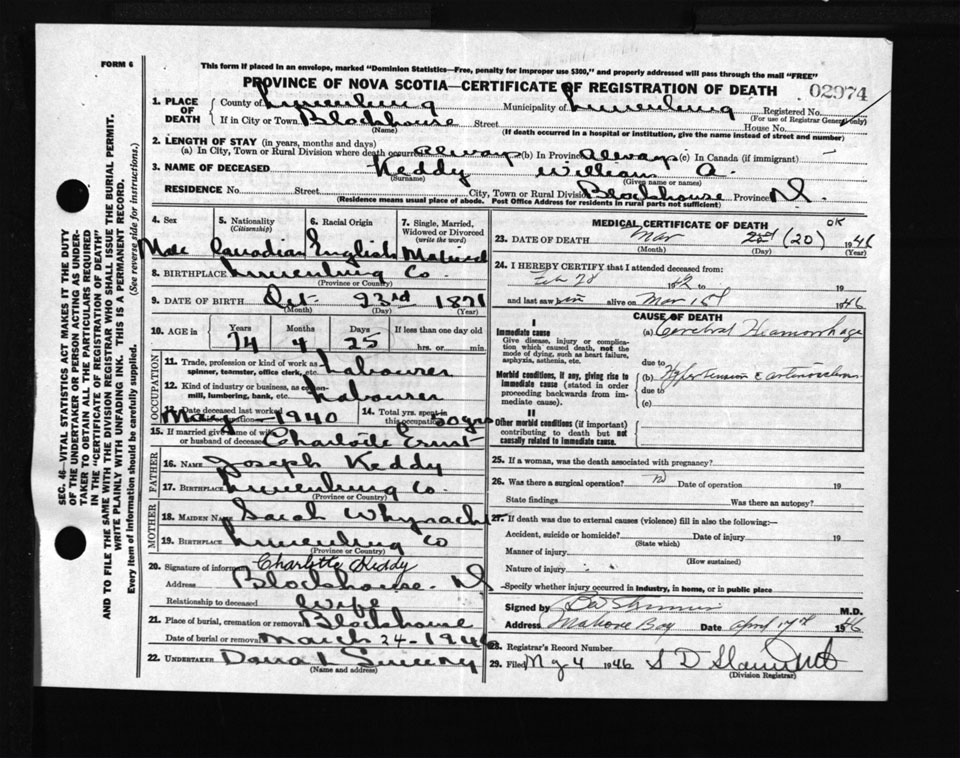 FORM 6
This form if placed in an envelope, marked "Dominion Statistics—Free, penalty for improper use $300," and properly addressed will pass through the mail "FREE"
PROVINCE OF NOVA SCOTIA—CERTIFICATE OF REGISTRATION OF DEATH
02974
1. PLACE OF DEATH
County of Lunenburg Municipality of Lunenburg Registered No.
(For use of Registrar General only)
If in City or Town Blockhouse Street House No.
(Name) (If death occurred in a hospital or institution, give the name instead of street and number)
2. LENGTH OF STAY (in years, months and days)
(a) In City, Town or Rural Division where death occurred always (b) In Province always (c) In Canada (if immigrant) -
3. NAME OF DECEASED Keddy William A.
(Surname) (Given name or names)
RESIDENCE No. Street City, Town or Rural Division Blockhouse Province N.S.
(Residence means usual place of abode. Post Office Address for residents in rural parts not sufficient)
4. Sex 5. Nationality (Citizenship) 6. Racial Origin 7. Single, Married, Widowed or Divorced (write the word)
Male Canadian English Married
8. BIRTHPLACE Lunenburg Co.
(Province or Country)
9. DATE OF BIRTH Oct 23rd 1871
(Month) (Day) (Year)
10. AGE in Years Months Days If less than one day old
74 4 25 hrs. or min.
OCCUPATION
11. Trade, profession or kind of work as spinner, teamster, office clerk, etc. Labourer
12. Kind of industry or business, as cotton-mill, lumbering, bank, etc. Labourer
13. Date deceased last worked at this occupation May - 1940 14. Total yrs. spent in this occupation 50 yrs
15. If married give name of wife or husband of deceased Charlotte Ernst
FATHER
16. NAME Joseph Keddy
17. Birthplace Lunenburg Co.
(Province or Country)
MOTHER
18. MAIDEN NAME Sarah Whynacht
19. BIRTHPLACE Lunenburg Co
(Province or Country)
20. Signature of informant Charlotte Keddy
Address Blockhouse. N.S.
Relationship to deceased wife
21. Place of burial, cremation or removal Blockhouse
Date of burial or removal March 24 - 1946
22. UNDERTAKER Dana L Sweeny
(Name and address)
MEDICAL CERTIFICATE OF DEATH
OK
23. DATE OF DEATH Mar 22nd (20) 1946
(Month) (Day) (Year)
24. I HEREBY CERTIFY that I attended deceased from:
Feb 28 19 to 19
and last saw him alive on Mar 1946
CAUSE OF DEATH
I
Immediate cause
Give disease, injury or complication which caused death, not the mode of dying, such as heart failure, asphyxia, asthenia, etc.
(a) Cerebral Heamorrhage
due to
Morbid conditions, if any, giving rise to immediate cause (stated in order proceeding backwards from immediate cause).
(b) Hypertension &
due to
(c)
II
Other morbid conditions (if important) contributing to death but not causally related to immediate cause.
25. If a woman, was the death associated with pregnancy?
26. Was there a surgical operation? no Date of operation 19
State findings Was there an autopsy?
27. If death was due to external causes (violence) fill in also the following:—
Accident, suicide or homicide? Date of injury 19
(State which)
Manner of injury
(How sustained)
Nature of injury
Specify whether injury occurred in industry, in home, or in public place
Signed by M.D.
Address Mahone Bay Date April 17 1946
28. Registrar's Record Number
29. Filed 4 1946 S D
(Division Registrar)
SEC. 46—VITAL STATISTICS ACT MAKES IT THE DUTY
OF THE UNDERTAKER OR PERSON ACTING AS UNDER-
TAKER TO OBTAIN ALL THE PARTICULARS REQUIRED
IN THE "CERTIFICATE OF REGISTRATION OF DEATH"
AND TO FILE THE SAME WITH THE DIVISION REGISTRAR WHO SHALL ISSUE THE BURIAL PERMIT.
WRITE PLAINLY WITH UNFADING INK. THIS IS A PERMANENT RECORD.
Every item of information should be carefully supplied. (See reverse side for instructions.)